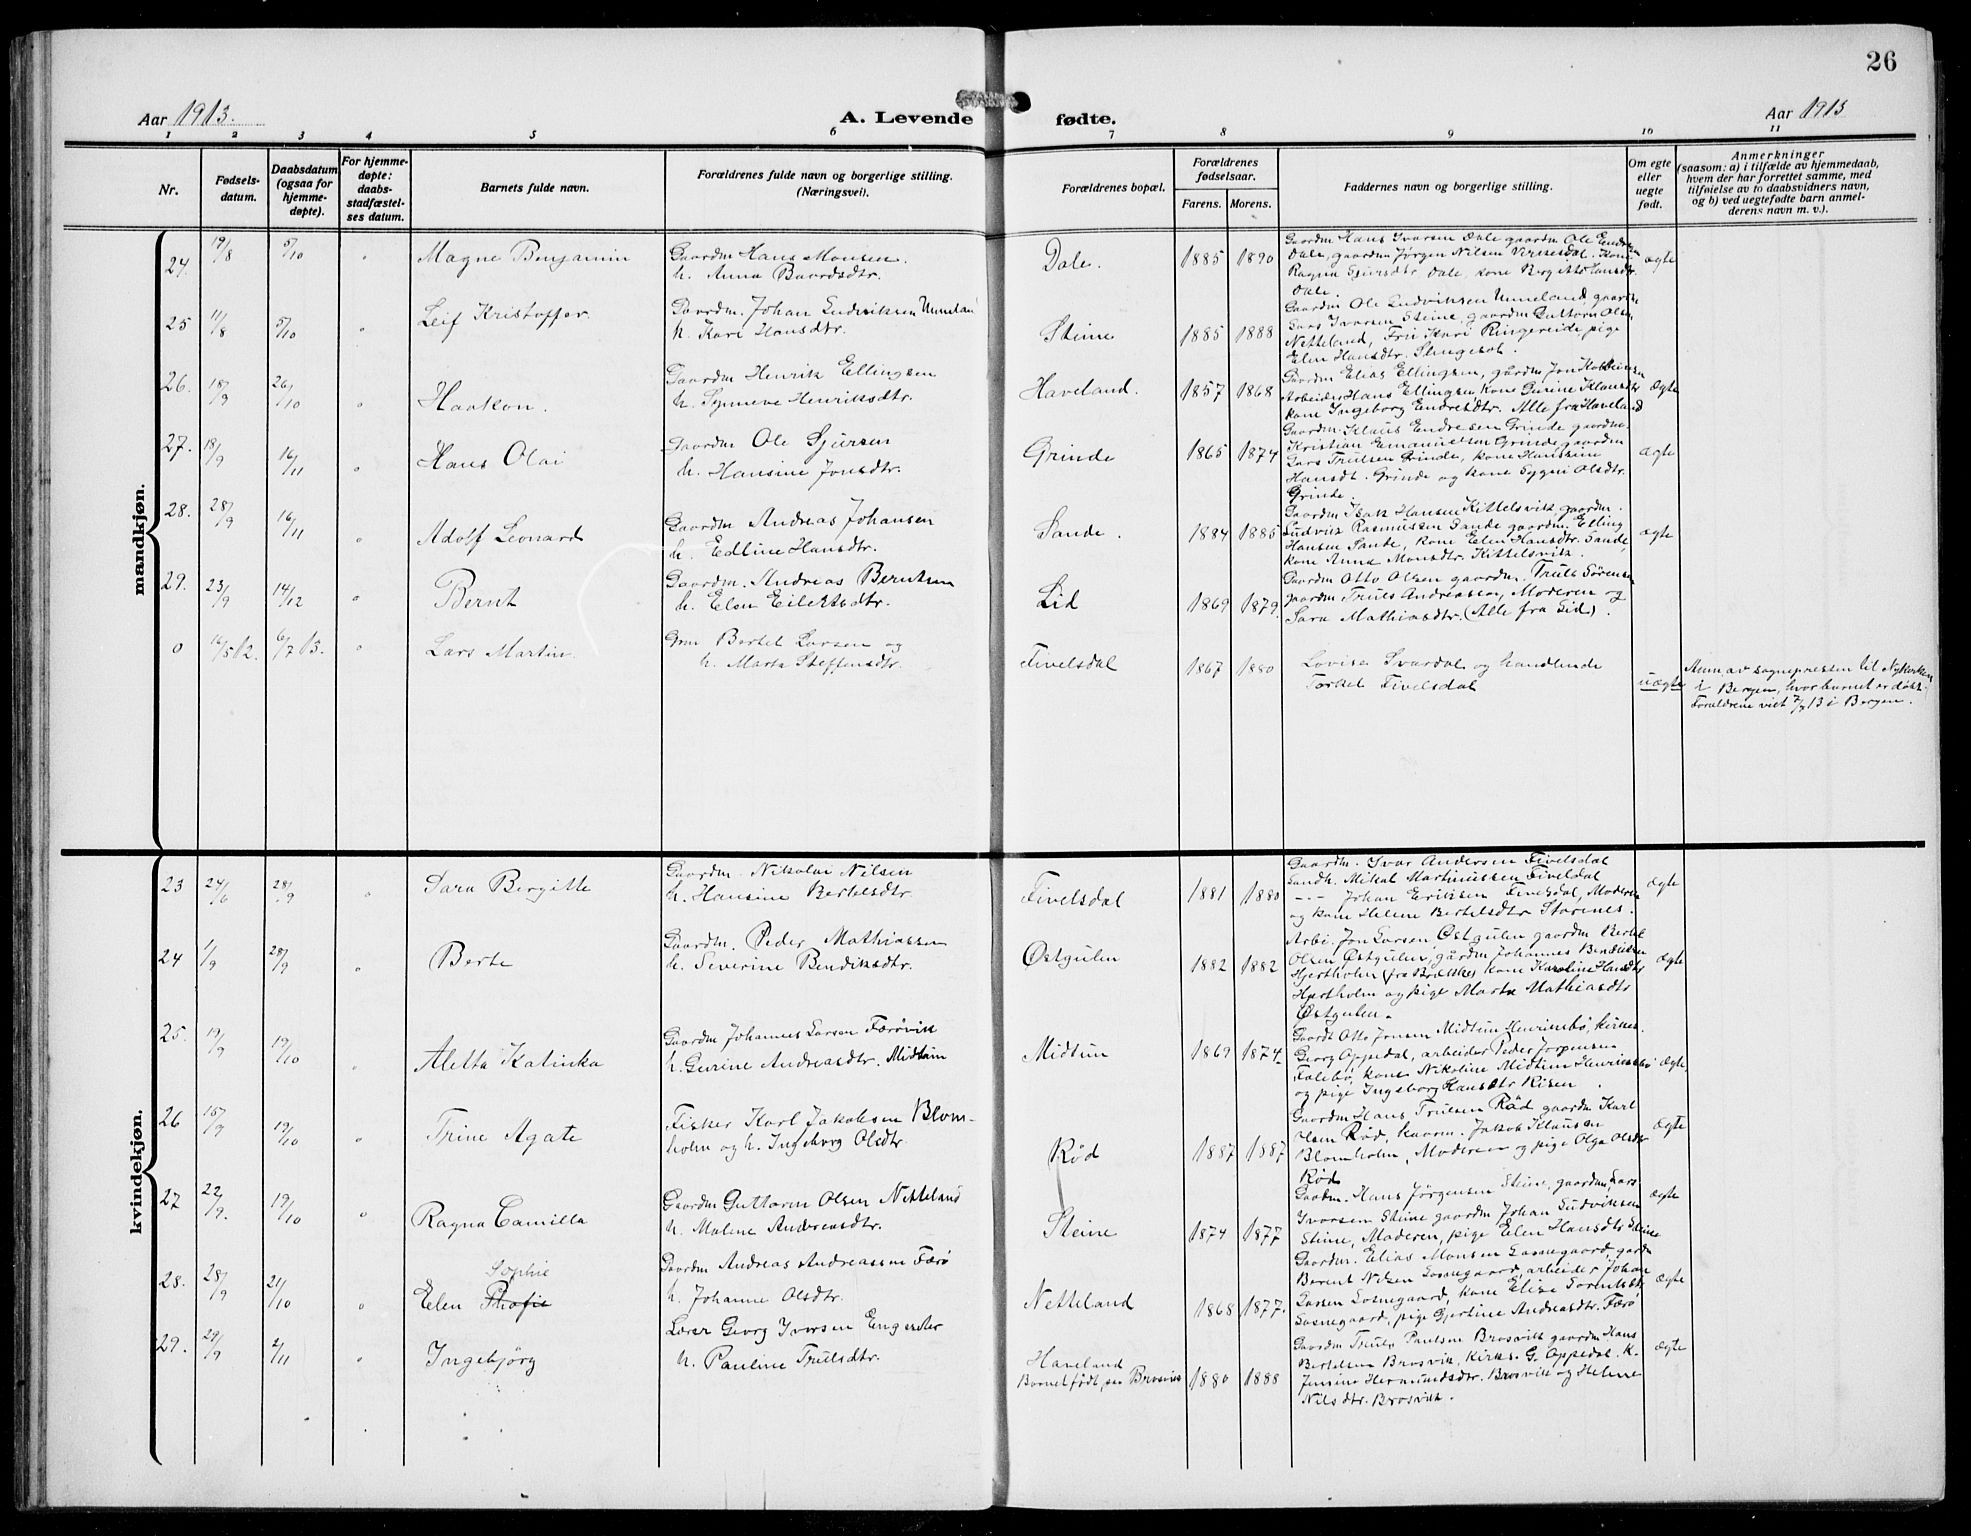 26
Aar 1913.
A. Levende fødte.
Aar 1913
1 2 3 4 5 6 7 8 9 10 11
Nr.
Fødsels-
datum.
Daabsdatum
(ogsaa for
hjemme-
døpte).
For hjemme-
døpte:
daabs-
stadfæstel-
ses datum.
Barnets fulde navn.
Forældrenes fulde navn og borgerlige stilling.
(Næringsvei).
Forældrenes bopæl.
Forældrenes
fødselsaar.
Farens. Morens.
Faddernes navn og borgerlige stilling.
Om egte
eller
uegte
født.
Anmerkninger
(saasom: a) i tilfælde av hjemmedaab,
hvem der har forrettet samme, med
tilføielse av to daabsvidners navn,
og b) ved uegtefødte barn anmel-
derens navn m. v.).
mandkjøn.
24. 19/8 5/10 Magne Benjamin
Gaardm Hans Monsen
h. Anna Baardsdtr.
Dale. 1885 1890
Gaardm Hans Ivarsen Dale gaardm Ole
Dale, gaardm Jørgen Nilsen kone
Ragna Sjursdtr Dale, kone
Dale
ægte
25 11/8 5/10 Leif Kristoffer
Gaardm. Johan Ludviksen
h. Kari Hansdtr.
Steine 1885 1888
Gaardm Ole Ludviksen gaardm
Lars Ivarsen Steine, gaardm Guttorm Olsen
Netteland, Fru Kari Ringereide, pige
Elen Hansdtr.
26. 18/9 26/10 Haakon.
Gaardm Henrik Ellingsen
h. Synneve Henriksdtr.
Haveland. 1857 1868
Gaardm Elias Ellingsen, gårdm Jon
Arbeider Hans Ellingsen kone Gurine Klausdtr
kone Ingeborg Endresdtr. Alle fra Haveland
ægte
27. 18/9 16/11 Hans Olai
Gaardm Ole Sjursen
h. Hansine Jonsdtr.
Grinde 1865 1874
Gaardm. Klaus Endresen Grinde gaardm.
Kristian Emanuelsen Grinde gaardm
Lars Trulsen Grinde, kone Hansine
Hansdt. Grinde og kone Olsdtr.
Grinde.
ægte
28. 28/9 16/11 Adolf Leonard
Gaardm Andreas Johansen
h. Edline Hansdtr.
Sande. 1884 1885
Gaardm Isak Hansen Kittelsvik, gaardm.
Ludvik Rasmussen Sande gaardm. Elling
Hansen Sande, kone Elen Hansdtr. Sande,
kone Anna Monsdtr. Kittelsvik.
ægte
29. 23/9 14/12 Bernt
Gaardm. Andreas Berntsen
h. Elen Eilertsdtr.
Lid 1869 1879.
Gaardm Otto Olsen gaardm. Truls Sørensen
gaardm Truls Andreassen, Moderen og
Sara Mathiasdtr. (Alle fra Lid).
0 16/5 12. 6/7 13. Lars Martin
Grm Bertel Larsen og
h. Marta Steffensdtr.
Fivelsdal 1867 1880
Lovise Svardal og handlende
Torkel Fivelsdal
uægte
Anm av sognepresten til Nykirken
i Bergen, hvor barnet er døbt.
Forældrene viet 13 i Bergen.
kvindekjøn.
23 24/6 28/9 Sara Bergitte
Gaardm. Nikolai Nilsen
h. Hansine Bertelsdtr.
Fivelsdal 1881 1880
Gaardm. Ivar Andersen Fivelsdal
Landh. Mikal Martinussen Fiveldal
— Johan Eriksen Fivelsdal, Moderen
og kone Helene Bertelsdtr Storenes.
ægte
24 1/9 28/9 Berte
Gaardm. Peder Mathiassen
h. Severine Bendiksdtr.
Østgulen 1882 1882
Arb. Jon Larsen Østgulen gaardm Bertel
Olsen Østgulen, gårdm Johannes Bendiksen
Hjertholm kone Karoline Hansdtr
Hjertholm og pige Marta Mathiasdtr
Østgulen.
ægte
25. 19/9 19/10 Aletta Katinka
Gaardm Johannes Larsen Færøvik
h. Gurine Andreasdtr. Midtun
Midtun 1869 1874
Gaardb Otto Jonsen Midtun Henriksbø, kirkes.
Georg Oppedal, arbeider Peder Jørgensen
Falebø, kone Nikoline Midtun Henriksbø
og pige Ingeborg Hansdtr Risen.
ægte
26 15/9 19/10 Trine Agate
Fisker Karl Jakobsen Blom-
holm og h. Ingeborg Olsdtr.
Rød 1887 1887
Gaardm Hans Trulsen Rød gaardm Karl
Olsen Rød, kaarm. Jakob Klausen
Blomholm, Moderen og pige Olga Olsdtr
Rød
ægte
27 22/9. 19/10 Ragna Camilla
Gaardm Guttorm Olsen Netteland
h. Malene Andreasdtr.
Steine 1874 1877
Gaardm. Hans Jørgensen Steine, gaardm Lars
Ivarsen Steine gaardm Johan Ludviksen
Steine, Moderen, pige Elen Hansdtr Steine
ægte
28. 28/9 21/10 Elen Sophie
Gaardm Andreas Andreassen Færø
h. Johanne Olsdtr.
Netteland 1868 1877.
Gaardm. Elias Monsen Losnegaard, gardm
Berent Nilsen Losnegaard, arbeider Johan
Larsen Losnegaard, kone Elise
Losnegaard, pige Gjertine Andreasdtr. Færø
ægte
29. 29/9 2/11 Ingebjørg
Lærer Georg Iversen Engesæter
h. Pauline Trulsdtr.
Haveland
Barnet født paa Brosvik
1880 1888
Gaardm Truls Paulsen Brosvik gaardm Hans
Bertelsen Brosvik, Kirkes. G. Oppedal. K.
Jensine Hermundsdtr. Brosvik og Helene
Nilsdtr. Brosvik.
ægte